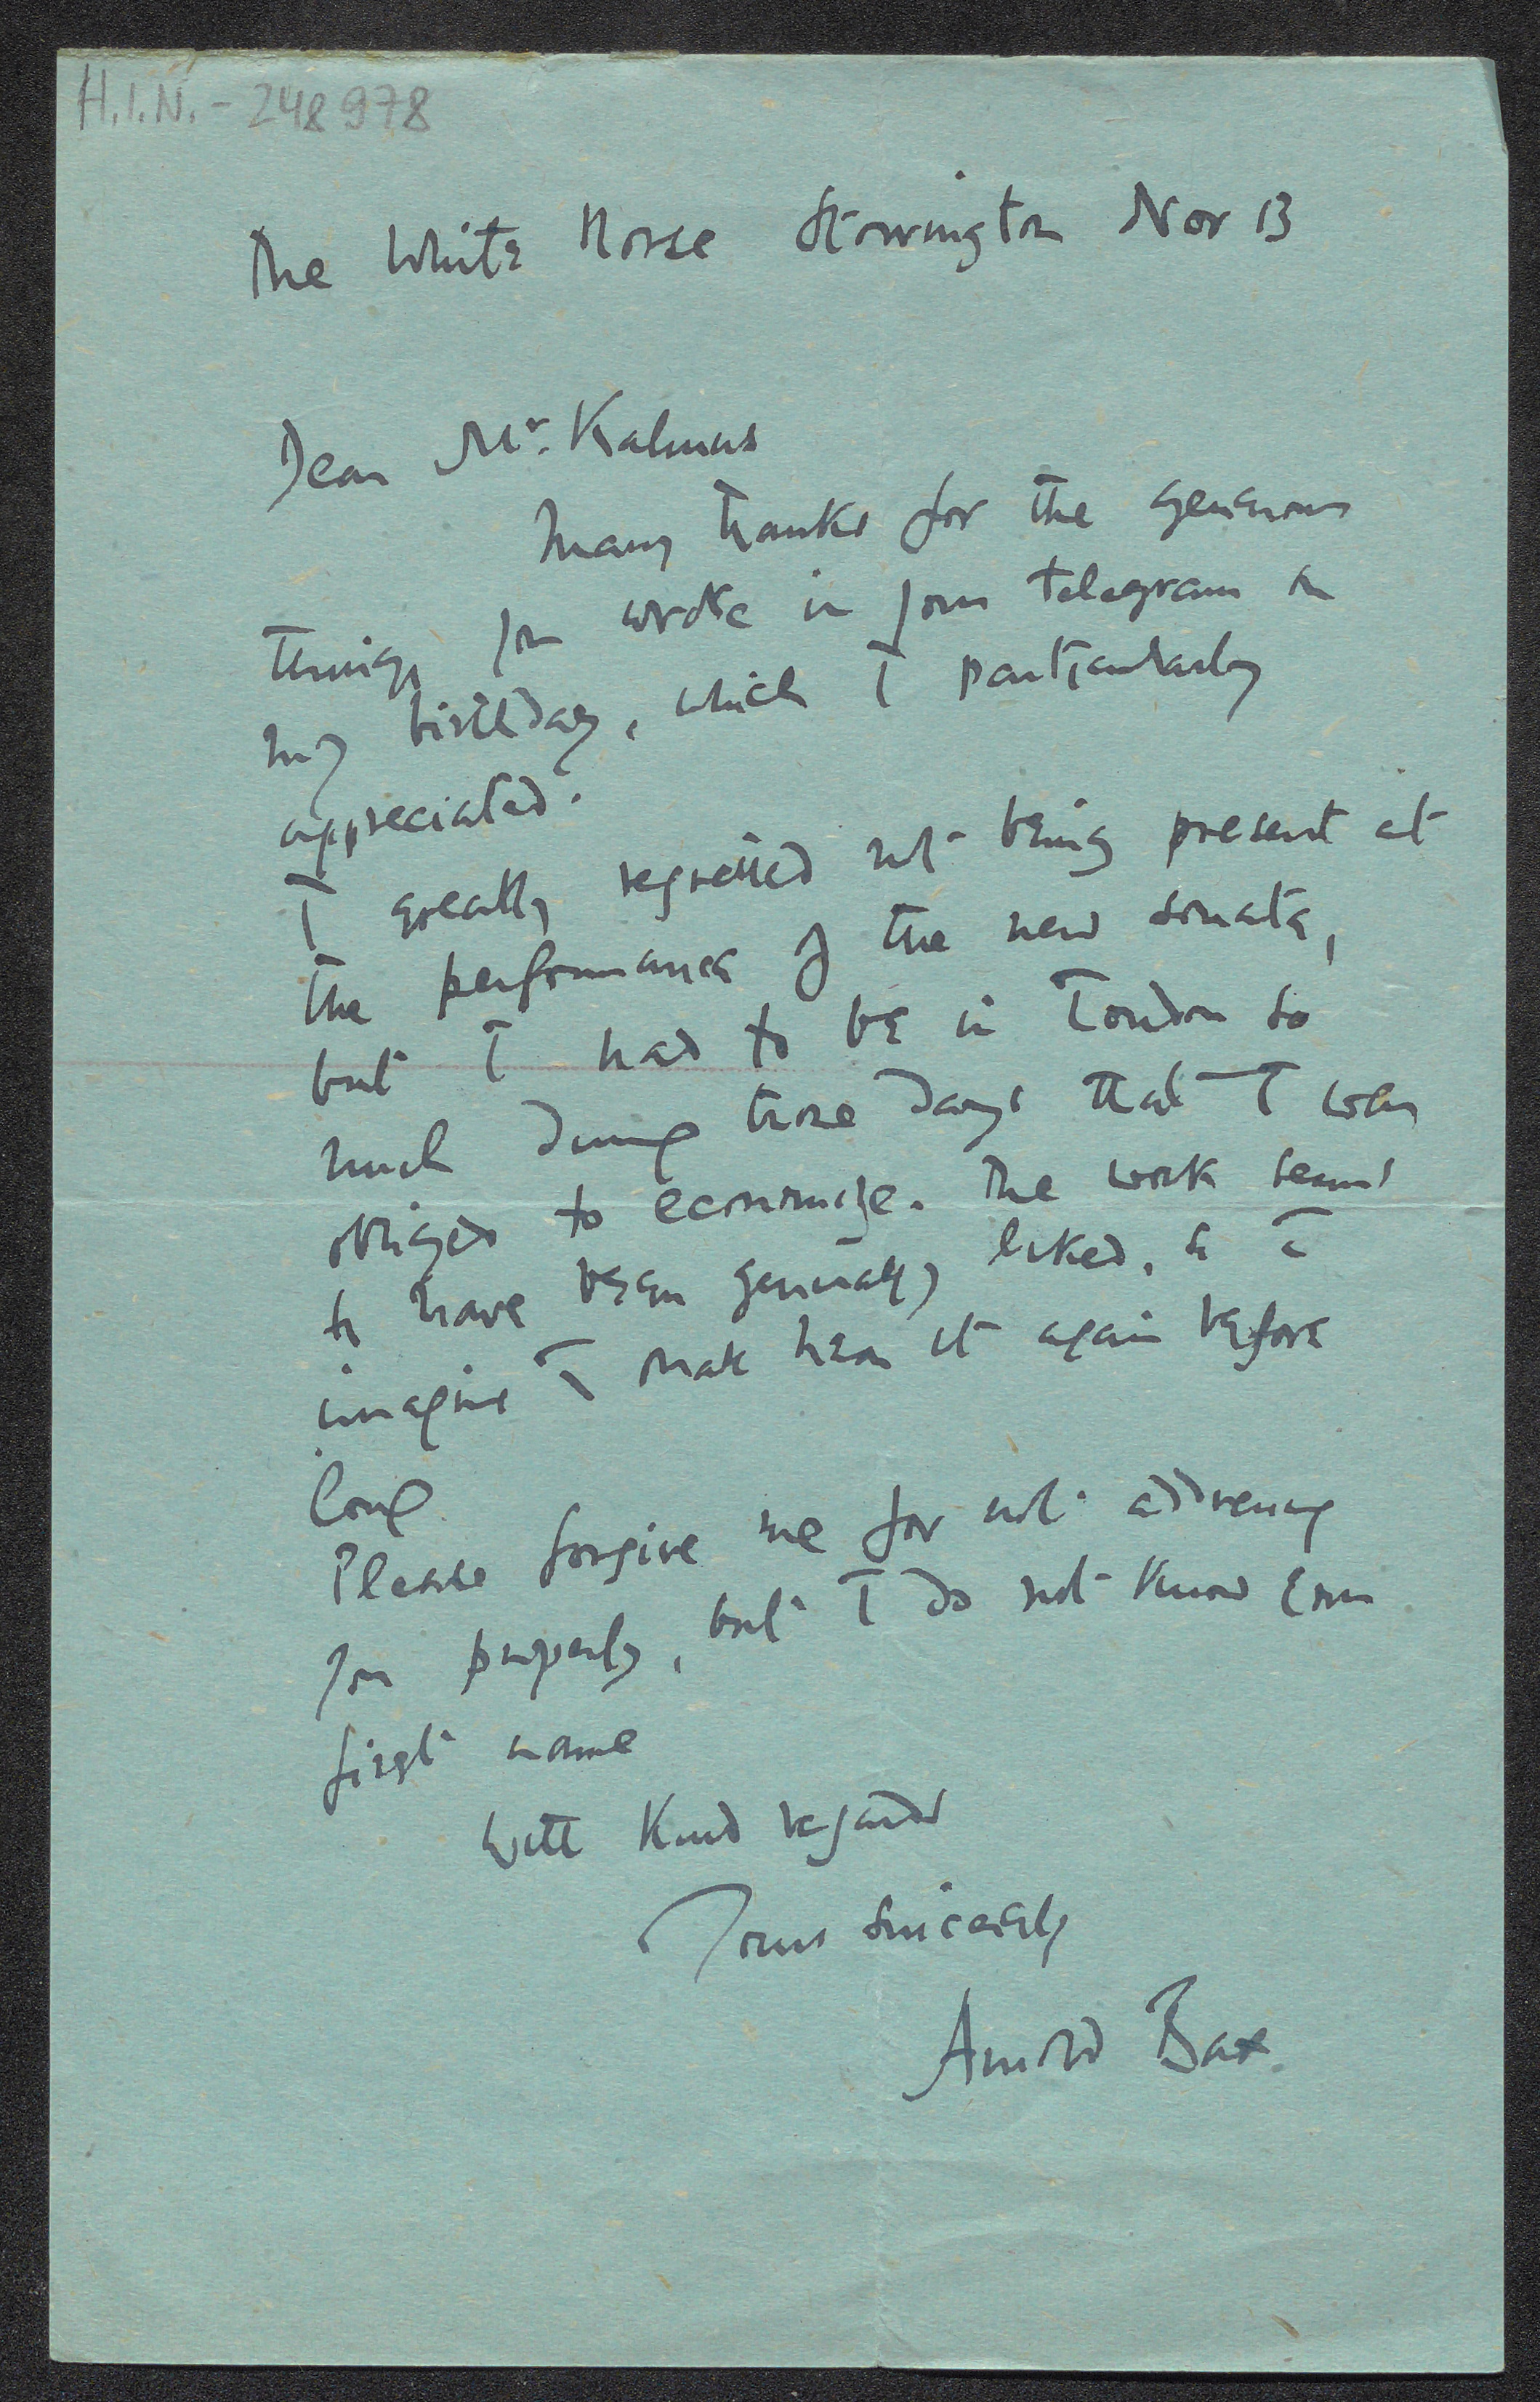 H.I.N. - 248978
The White Horse Storrington Nov 13
Dear Mr. Kalmus
Many thanks for the generous
things you wrote in your telegram on
my birthday, which I particularly
appreciated.
I greatly regretted not being present at
the performance of the new sonata,
but I had to be in London so
much during those days that I was
obliged to economize. The work seems
to have been generally liked, so I
imagine I shall hear it again before
long
Please forgive me for not addressing
you properly, but I do not know your
first name
With kind regards
Yours sincerely
Arnold Bax.